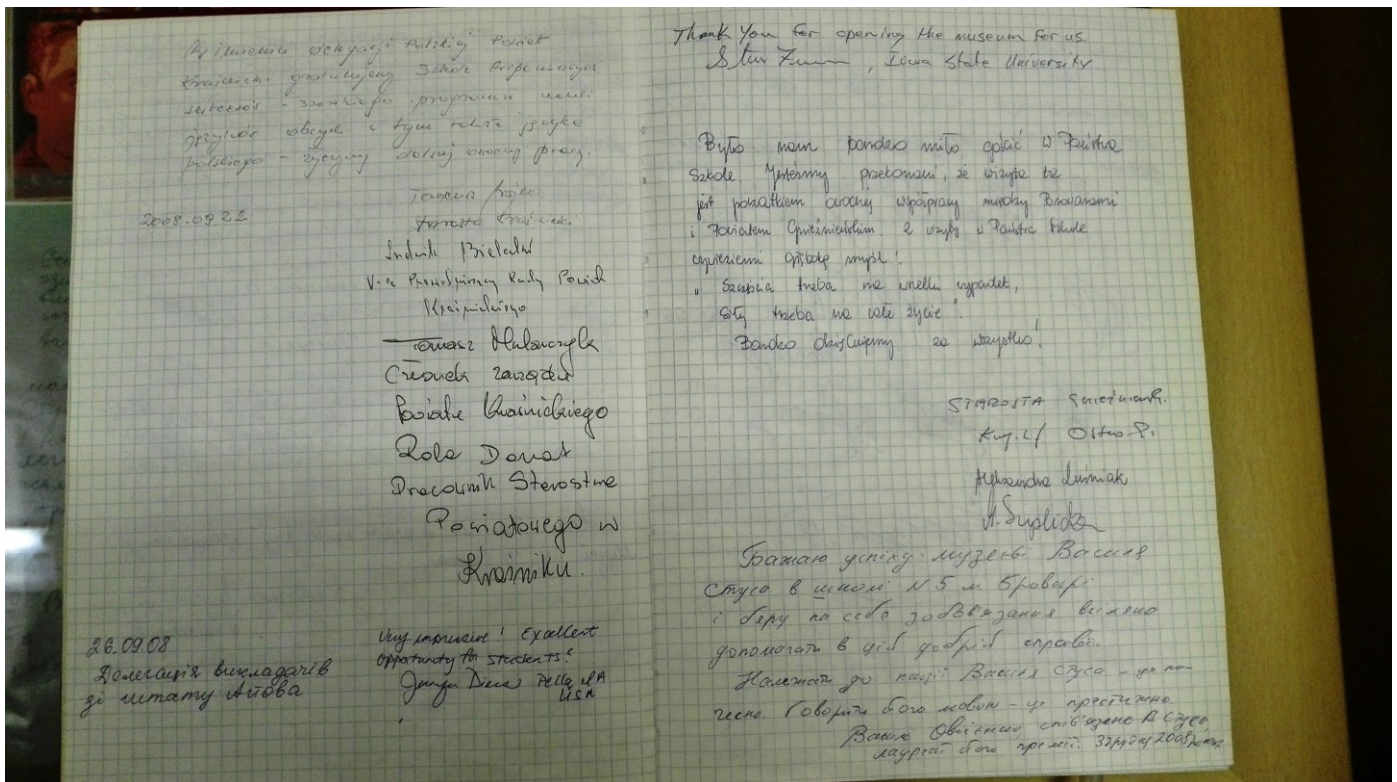 W imieniu delegacji Polskiej Powiat
Kraśnicki gratulujemy Szkole
sukcesów - szerokiego programu nauki
języków obcych w tym także języka
polskiego - życzymy dalszej owocnej pracy.
2008.09.22
Starosta Kraśnicki
Ludwik
V-ce Przewodniczący Rady Powiatu
Kraśnickiego
Tomasz Mularczyk
Członek zarządu
Powiatu Kraśnickiego
Rola Donat
Pracownik Starostwa
Powiatowego w
Kraśniku.
26.09.08
Делегація викладачів
зі штату Айова
Very impressive! Excellent
oppatunity for students!
Pella IA
USA
Thank You for opening the museum for us.
Iowa State University
Było nam bardzo miło gościć w Państwa
Szkole. Jesteśmy przekonani, że wizyta ta
jest początkiem owocnej współpracy między Browarami
i Powiatem Gnieźnieńskim. Z wizyty w Państwa szkole
wywieziemy głęboką myśl!
" Szczęścia trzeba na wszelki wypadek,
Siły trzeba na całe życie".
Bardzo dziękujemy za wszystko!
STAROSTA
Aleksandra
Бажаю успіху музеєві Василя
Стуса в школі N 5 м. Бровари
і беру на себе зобов'язання всіляко
допомагати в цій добрій справі.
Належати до нації Василя Стуса - це по-
чесно. Говорити його мовою - це престижно.
Василь Овсієнко, співв'язень В. Стуса,
лауреат його премії. 2008 року